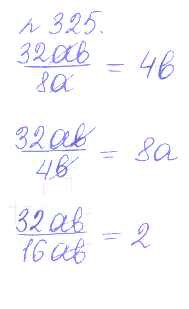 № 325.
32ab/8a = 4b
32ab/4b = 8a
32ab/16ab = 2